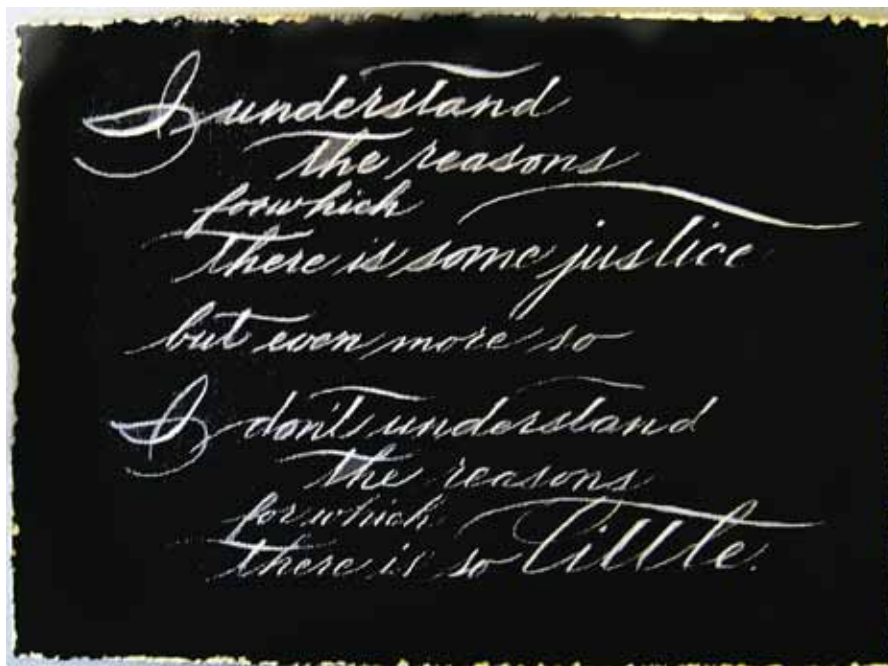 I understand
the reasons
for which
there is some justice
but even more so
I don't understand
the reasons
for which
there is so little.